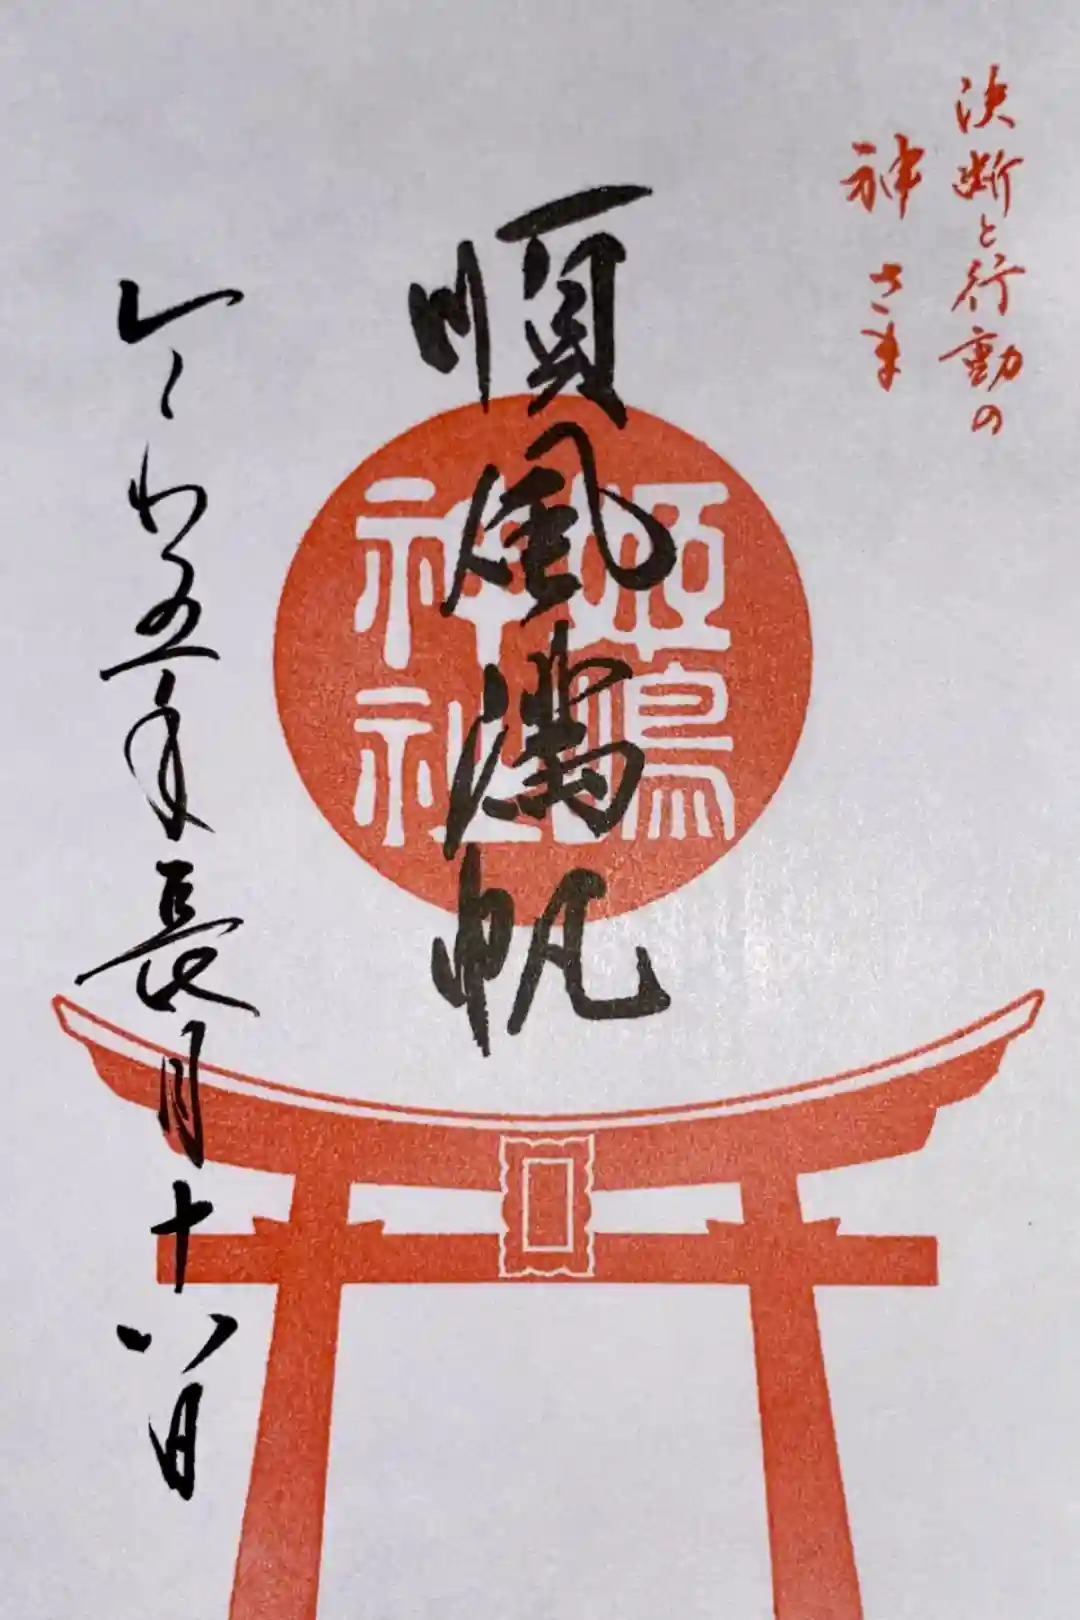 決断と行動の
神さま
順風満帆
姫嶋
神社
令和五年長月十八日